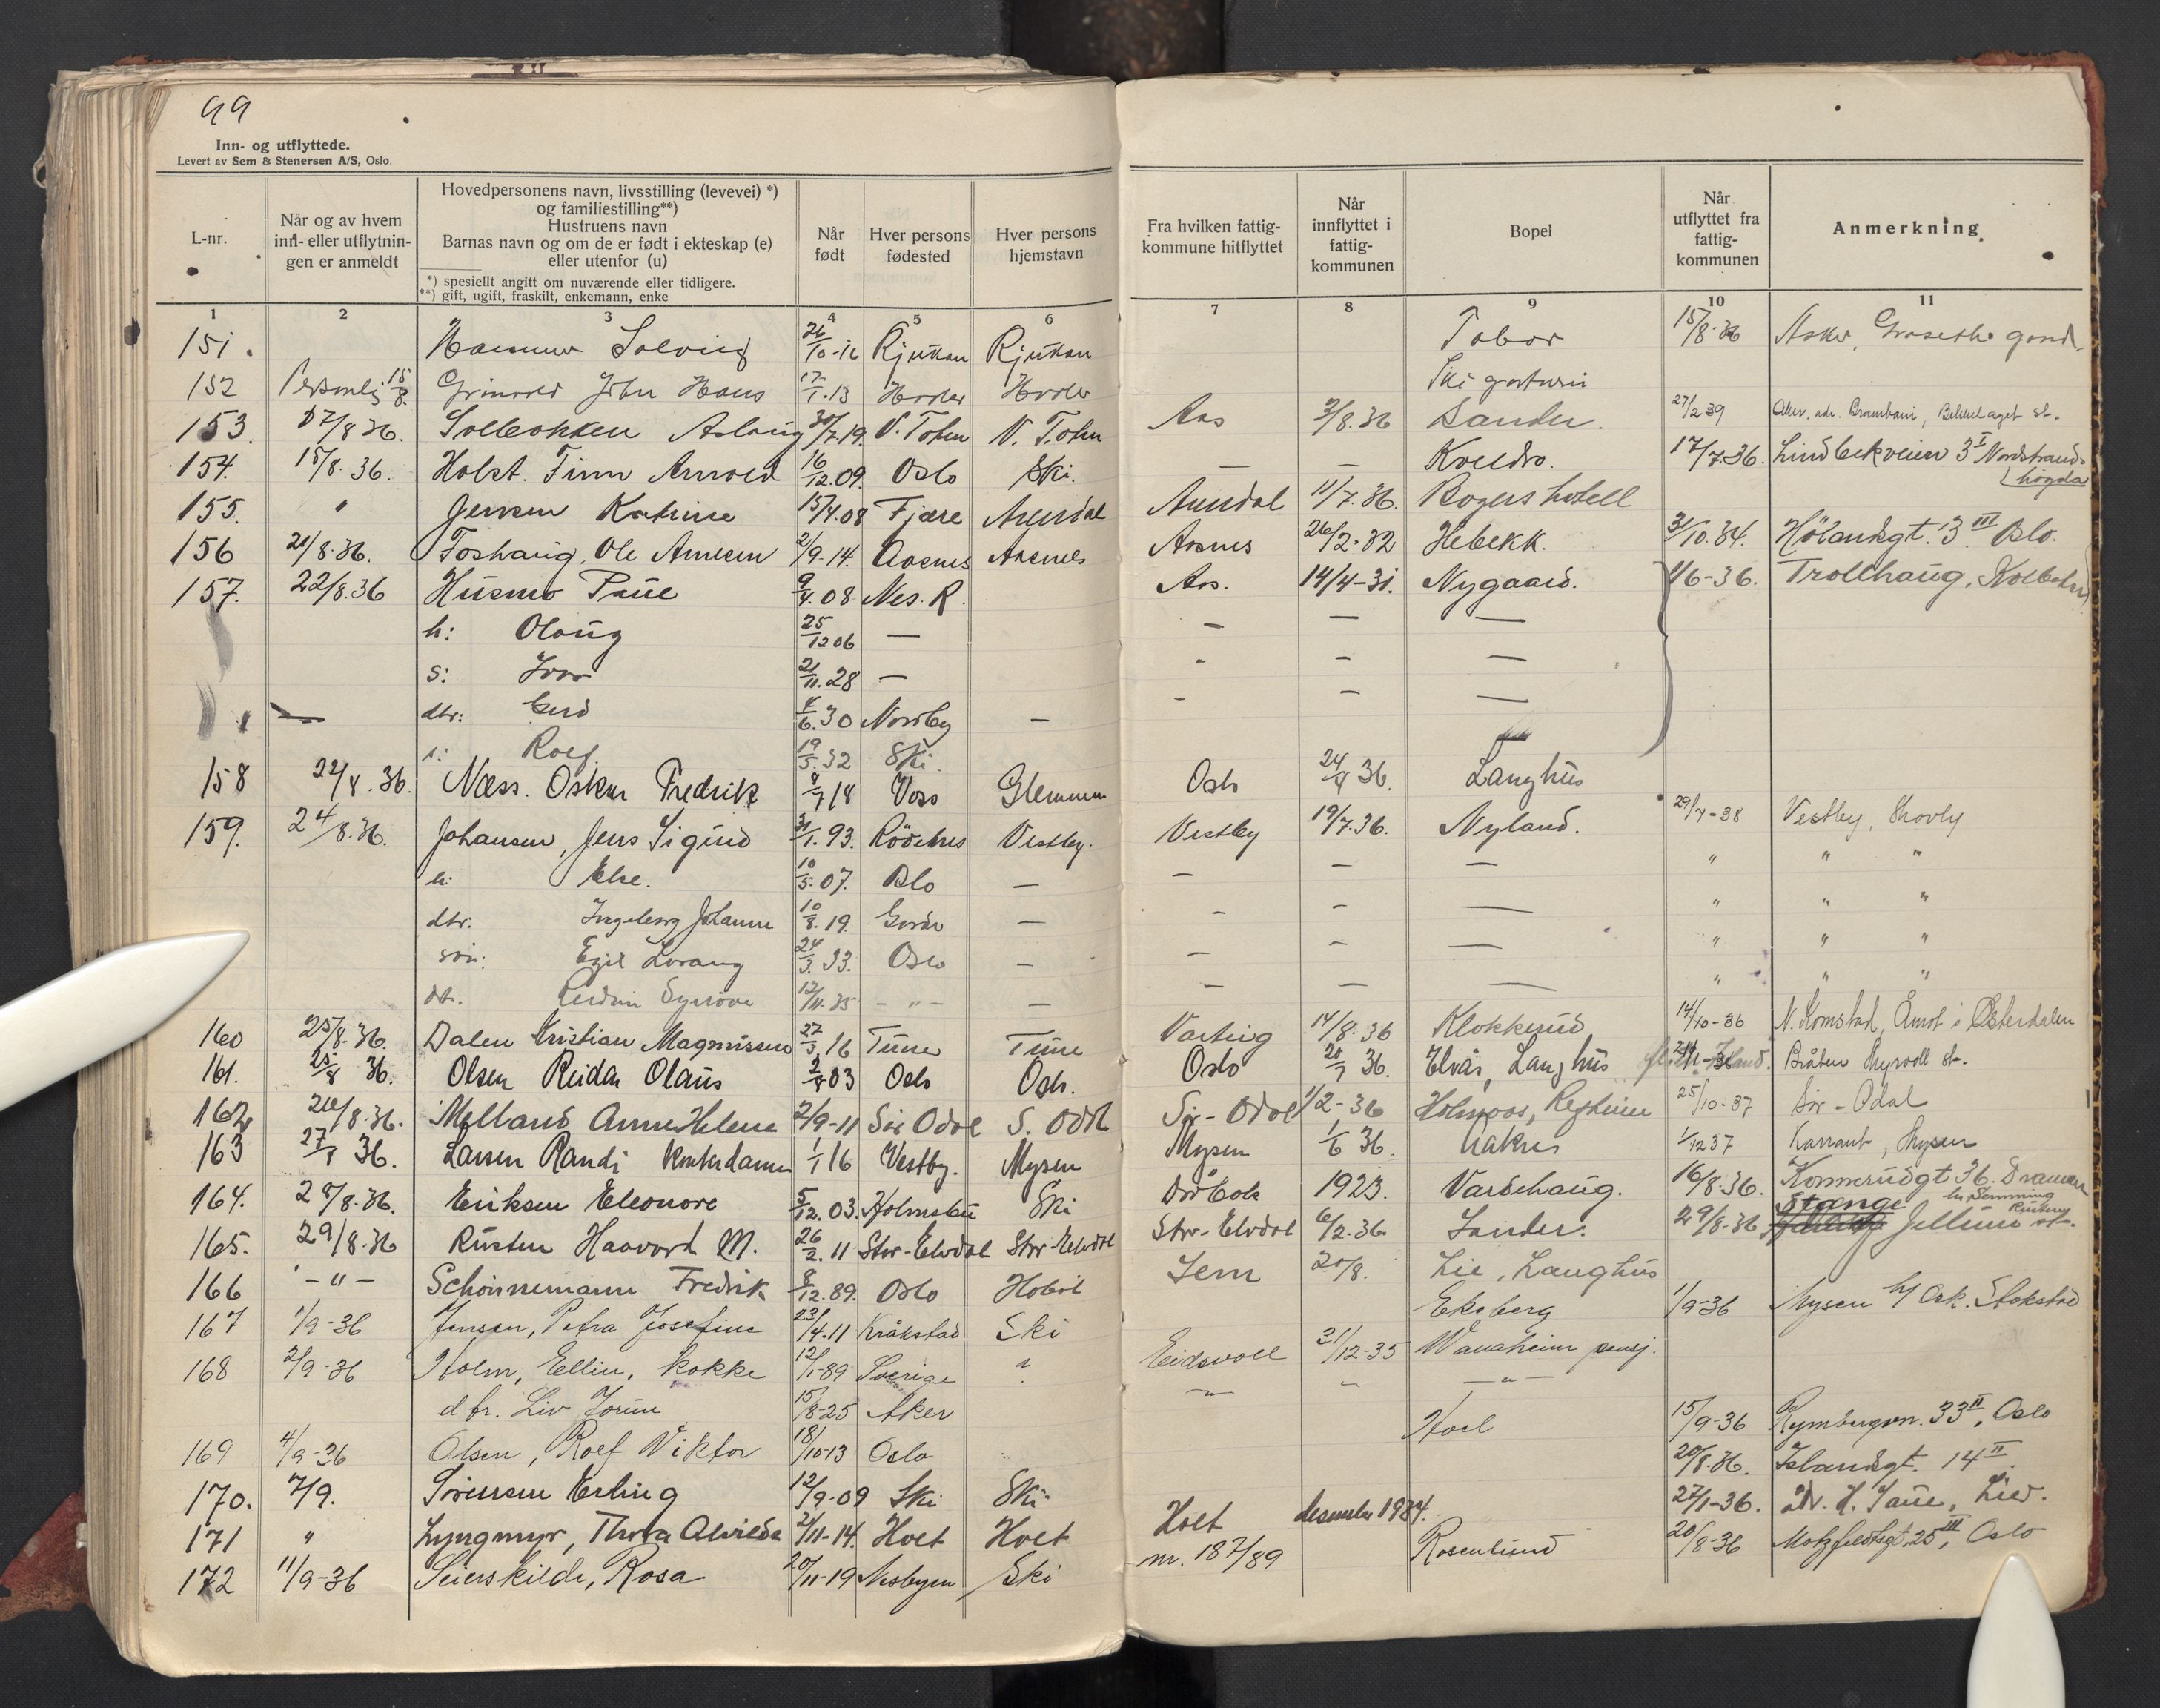 99
Inn- og utflyttede.
Levert av Sem & Stenersen A/S, Oslo.
L-nr.
Når og av hvem inn- eller utflytningen er anmeldt
Hovedpersonens navn, livsstilling (levevei) *)
og familiestilling**)
Hustruens navn
Barnas navn og om de er født i ekteskap (e)
eller utenfor (u)
*) spesiellt angitt om nuværende eller tidligere.
**) gift, ugift, fraskilt, enkemann, enke
Når født
Hver persons fødested
Hver persons hjemstavn
Fra hvilken fattigkommune hitflyttet
Når innflyttet i fattigkommunen
Bopel
Når utflyttet fra fattigkommunen
Anmerkning
1 2 3 4 5 6 7 8 9 10 11
151. Solveig 26/10-16 Rjukan Rjukan Tabor 15/8-36 Asker
152 Personlig 15/8. John Hans 17/1.13 Ski
153. 17/8 36. Aslaug 30/7.19. V. Toten V. Toten Aas 3/8.36 Sander. 27/2 39 Aker, Bekkelaget st.
154. 15/8.36. Holst. Finn Arnold 16/12.09. Oslo Ski. — — Kveldro. 17/7.36. Lindbekveien 3 I Nordstrandshøgda
155. " Jensen Katrine 15/4.08 Fjære Arendal Arendal 11/7.36. Rogers hotell
156 21/8.36. Foshaug, Ole Arnesen 2/9.14. Aasnes Aasnes Aasnes 26/2.32 Hebekk. 31/10.34. Hölandsgt. 3 III Oslo.
157. 22/8.36 Husmo Paul 9/4.08 Nes. R. Aas. 14/4-31. Nygaard. 1/6-36. Trollhaug, Kolbotn
h: Olaug 25/12 06 — — — —
s: Ivar 21/11.28 — - — —
dtr: Gerd 4/6.30 Nordby — — — —
s: Rolf 19/5.32 Ski.
158 22/8.36. Næss. Oskar Fredrik 8/7 18 Voss Glemmen Oslo 24/8 36. Langhus
159. 24/8.36. Johansen, Jens Sigurd 31/1.93. Rödenes Vestby. Vestby 19/7.36. Nyland. 29/7-38 Vestby,
h: Else. 10/5.07. Oslo — — — — " " "
dtr. Ingeborg Johanne 10/8.19. — - - — " " "
sön: Egil 24/3.33. Oslo — — - — " " "
dt. 12/11.35 - " - — — — — " " "
160 25/8.36. Dalen Kristian Magnussen 27/3.16 Tune Tune Varteig 14/8.36 Klokkerud 14/10-36 N. Komstad, Åmot i Østerdalen
161. 25/8 36. Olsen Reidar Olaus 2/8 03 Oslo Oslo. Oslo 20/7 36. Elvås, Langhus Bråten Myrvoll st.
162 26/8.36. Melland Anne Helene 2/9-11 Sør Odal S. Odal Sør-Odal 1/2-36 Holmoos, 25/10-37 Sör-Odal
163 27/8 36. Larsen Randi Kontordame 1/1 16 Vestby. Mysen Mysen 1/6 36. 1/12 37 Mysen
164. 28/8.36. Eriksen Eleonore 5/12.03. Holmsbu Ski 1923. Vardehaug. 16/8.36. Konnerudgt 36. Drammen
165. 29/8.36 Rusten Haavard M. 26/2.11 Stor-Elvdal Stor-Elvdal Stor-Elvdal 6/2.36. Sander. 29/8-36 Stange Jellum st.
166 - " - Schönnemann Fredrik 8/12.89. Oslo Hobøl Sem 20/8. Lie, Langhus
167 1/9-36 Jensen, Petra Josefine 23/4.11 Kråkstad Ski Ekeberg 1/9-36 Mysen
168 2/9-36 Holm, Ellin, kokke 12/1-89 Sverige " Eidsvoll 31/12-35 Wanaheim pensj.
dtr. Liv Jorun 15/8-25 Aker - " - - - " -
169 4/9-36 Olsen, Rolf Viktor 18/10-13 Oslo 15/9-36 33 II, Oslo
170. 7/9. Sörensen Erling 12/9-09 Ski Ski 20/8.36. Islandsgt. 14 II.
171 " Lyngmyr, Thora Alvilda 2/11-14. Holt Holt Holt desember 1934. 27/1-36. Lier.
172 11/9-36 Seierskilde, Rosa 20/11-19 Nesbyen Ski nr. 187/89 Rosenlund 20/8-36 Motzfeldtsgt. 25 III, Oslo